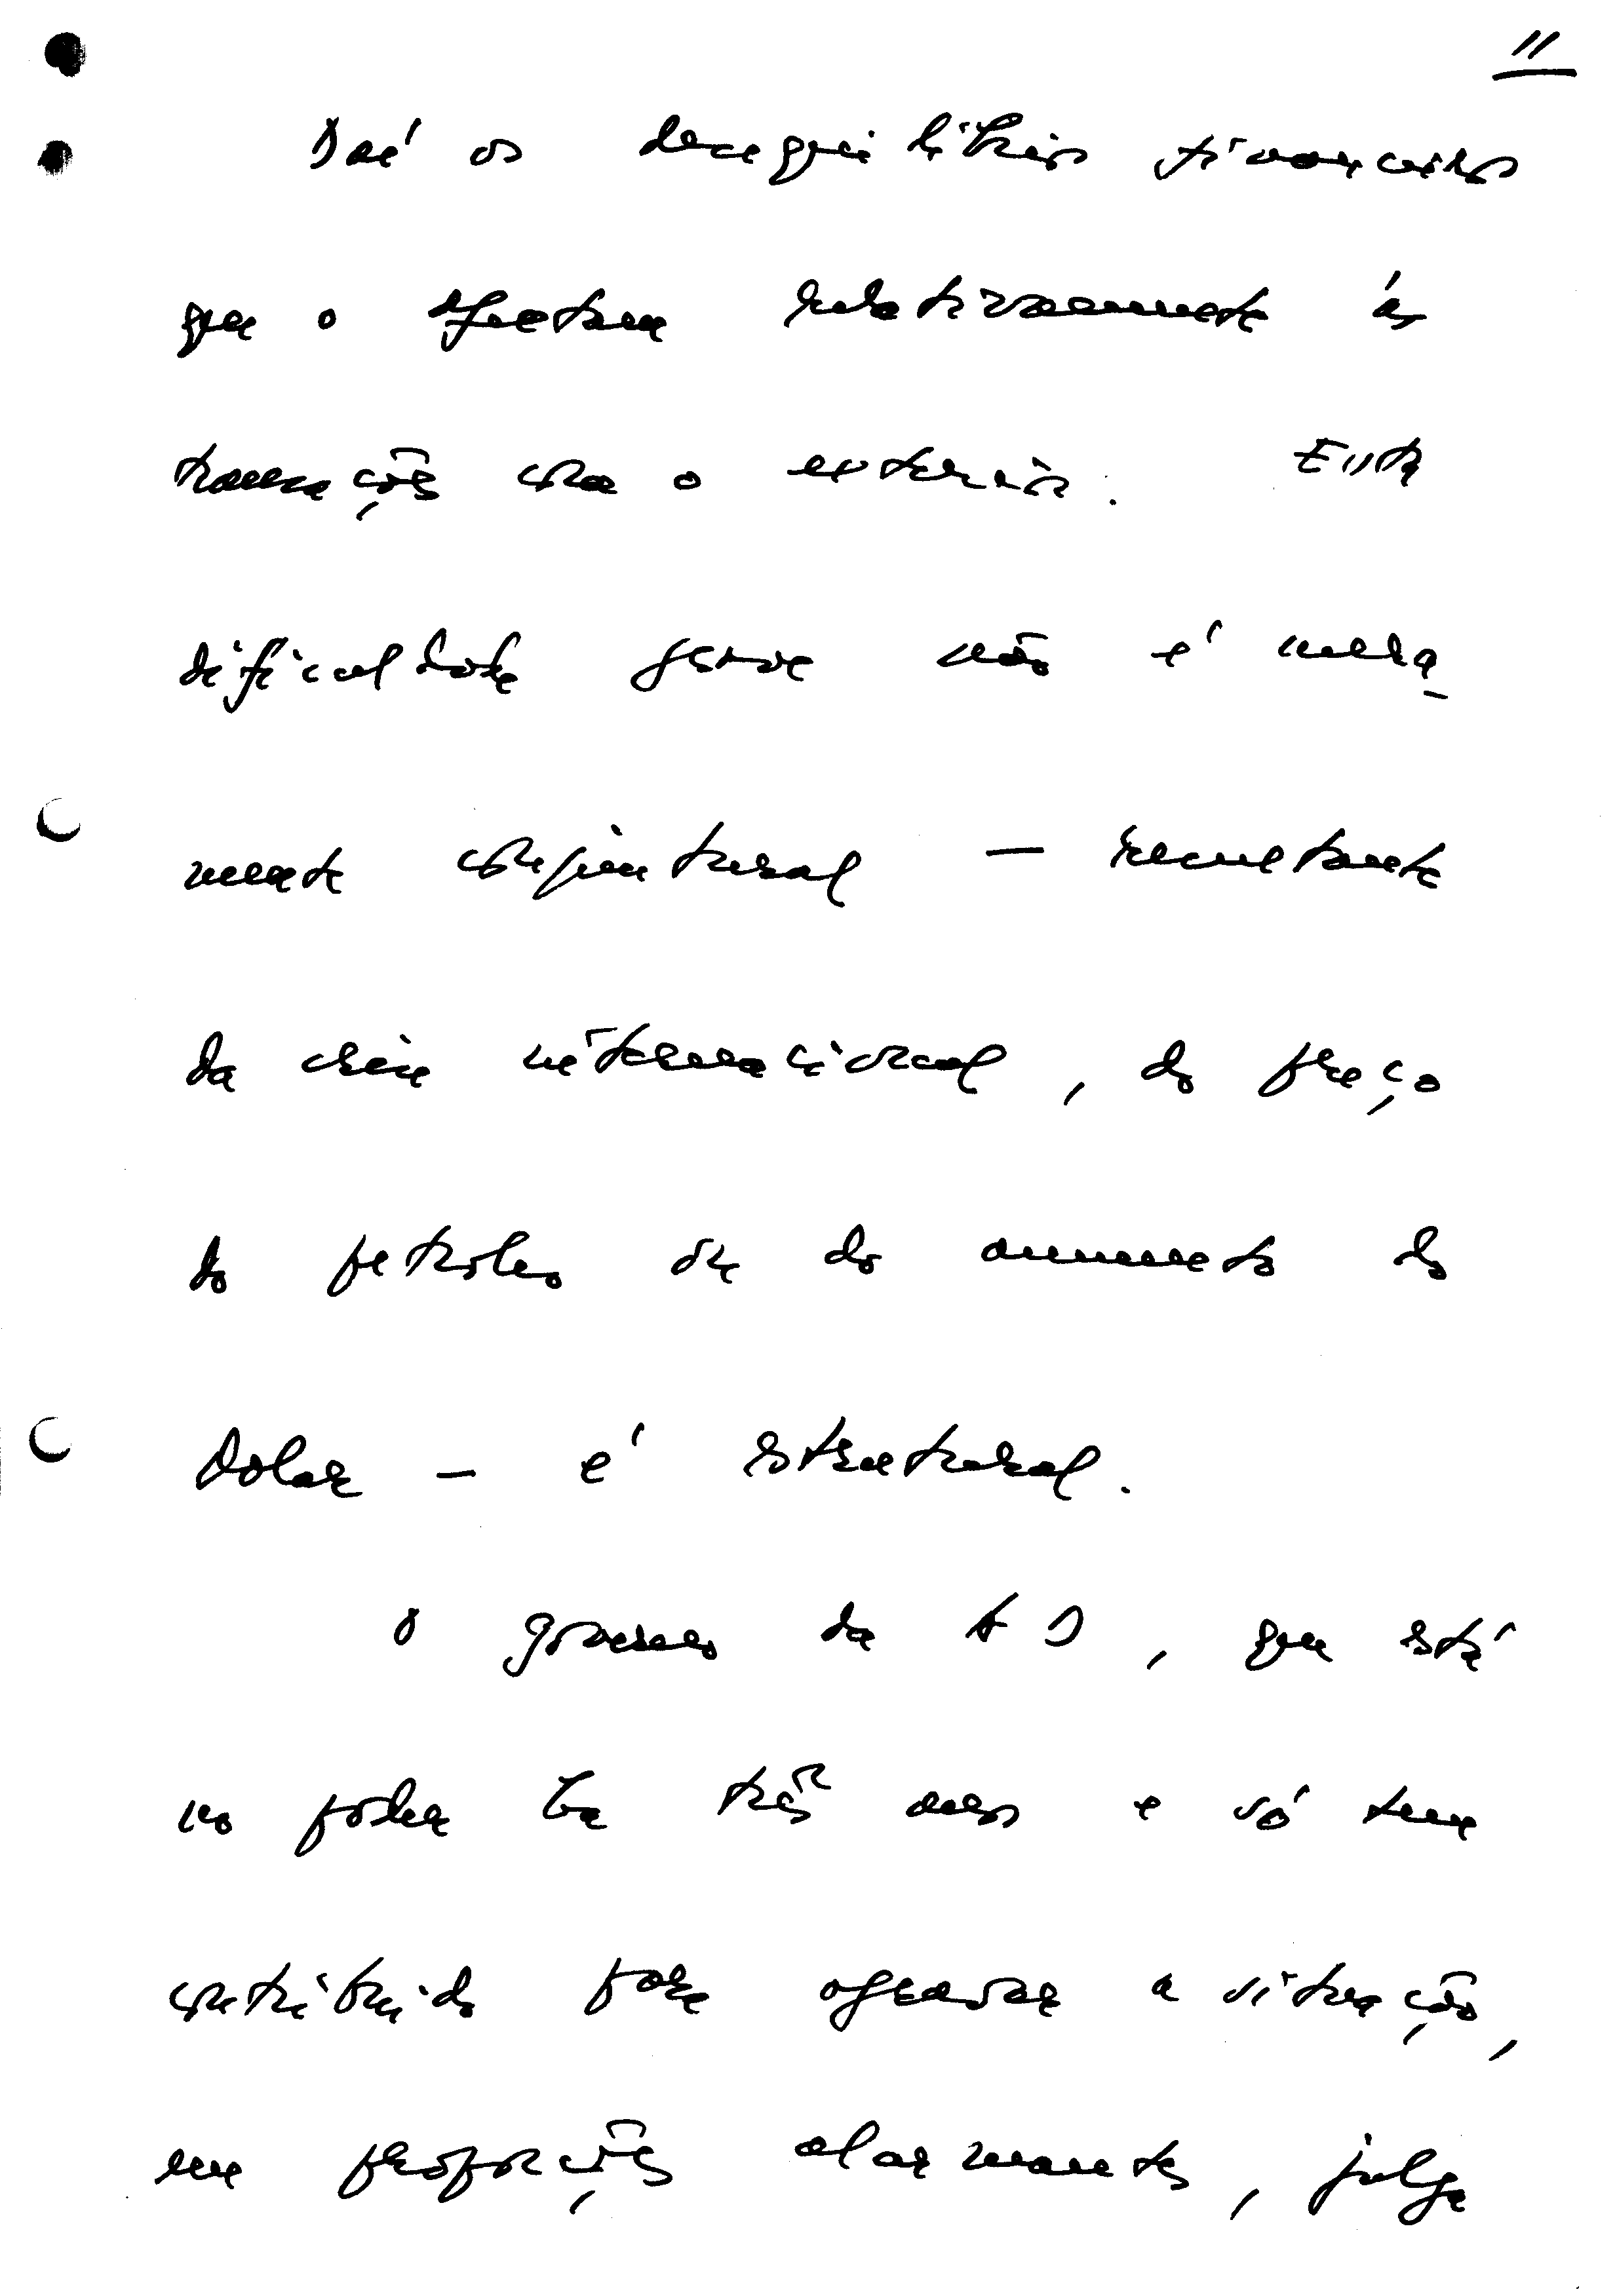 11
Daí os desequilíbrios financeiros
que o afectam relativamente às
transações com o exterior. Esta
dificuldade grave não é mera-
mente conjuntural — resultante
da crise internacional, do preço
do petroleo ou do aumento do
Dolar — é estrutural.
O governo da AD, que está
no poder há três anos e só tem
contribuido para agravar a situação,
em proporções alarmantes, julga